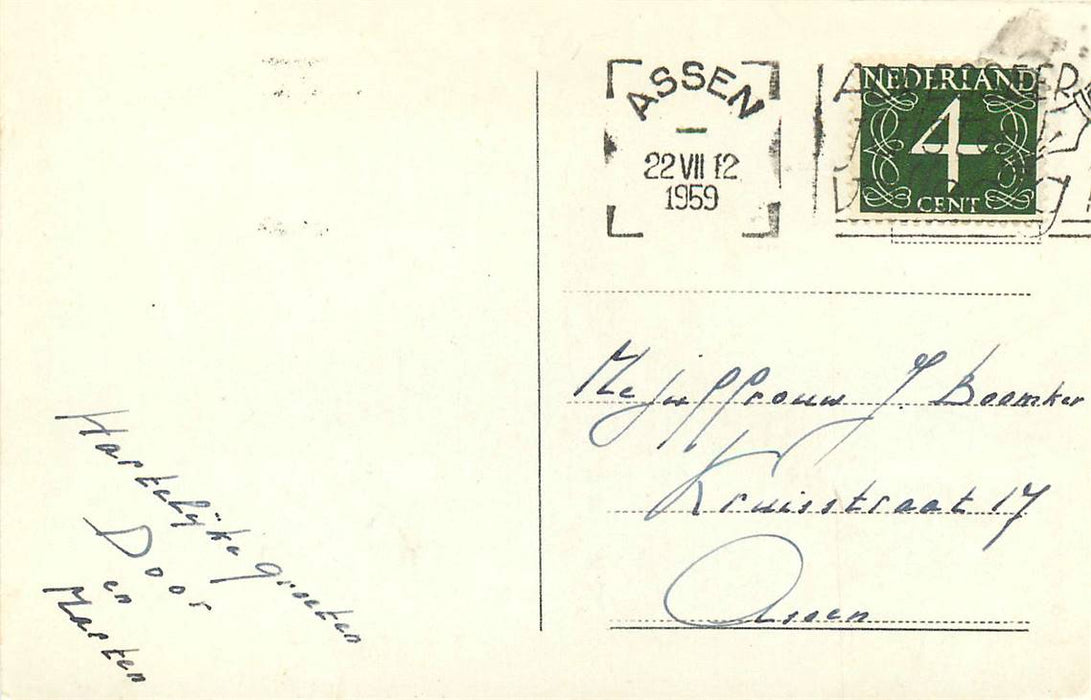 ASSEN
22 VII 12
1959
NEDERLAND
4
CENT
Mejuffrouw J. Boomker
Kruisstraat 17
Assen
Hartelijke groeten
Door
en
Marten